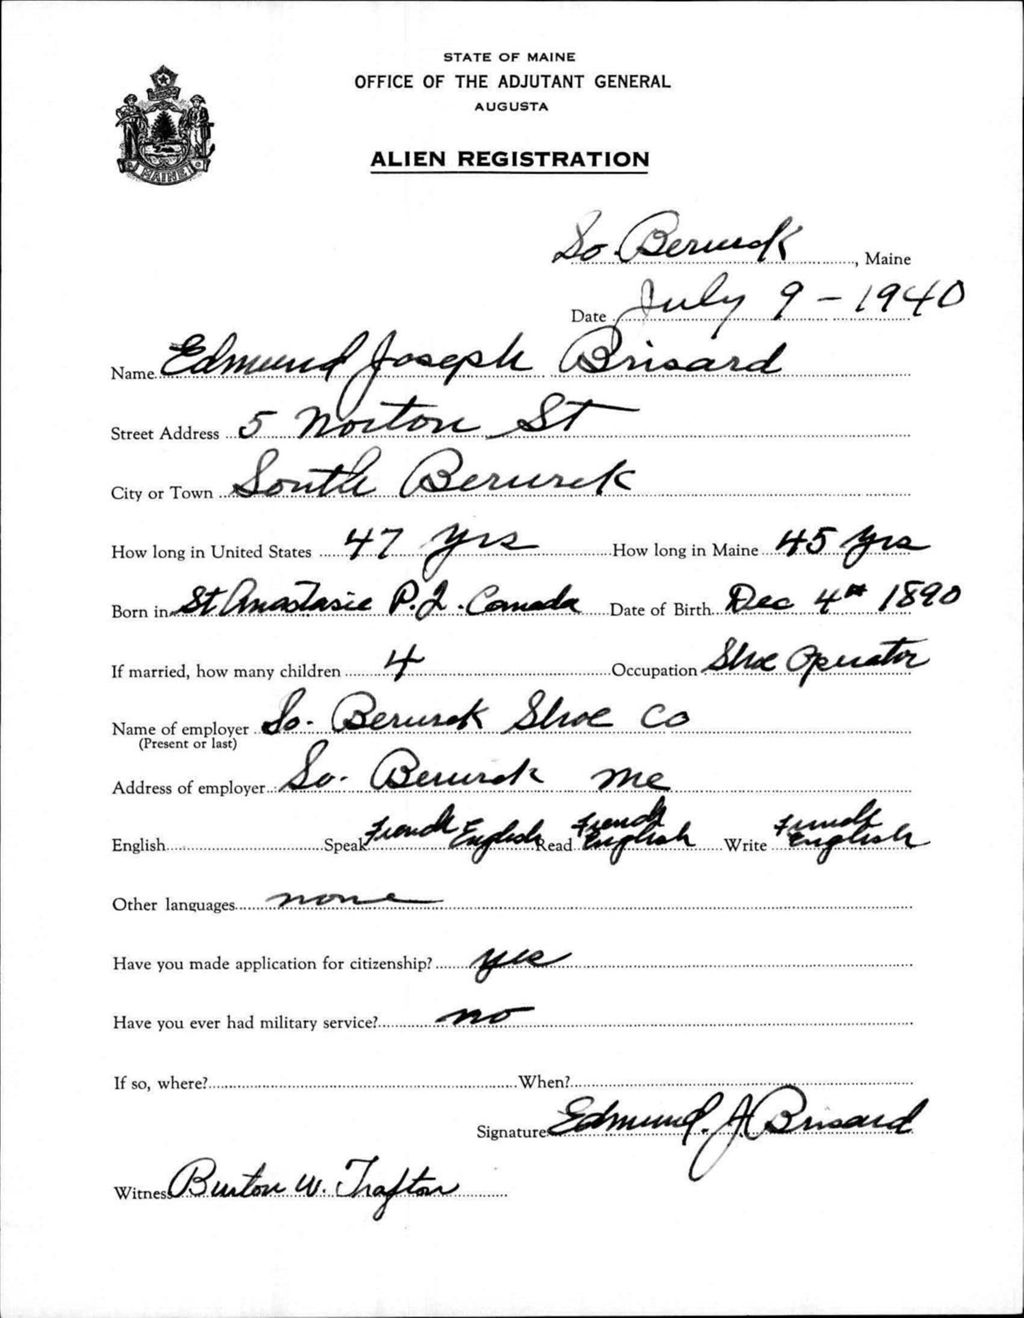 STATE OF MAINE
OFFICE OF THE ADJUTANT GENERAL
AUGUSTA
ALIEN REGISTRATION
MAINE
So. Berwick, Maine
Date July 9 - 1940
Name Edmund Joseph Brisard
Street Address 5 Norton St
City or Town South Berwick
How long in United States 47 yrs How long in Maine 45 yrs
Born in St Anastasie P.Q. Canada Date of Birth Dec 4th 1890
If married, how many children 4 Occupation Shoe Operator
Name of employer So. Berwick Shoe Co
(Present or last)
Address of employer So. Berwick Me
English Speak French English Read French English Write French English
Other languages none
Have you made application for citizenship? yes
Have you ever had military service? no
If so, where? When?
Signature Edmund. J. Brisard
Witness Burton W. Trafton